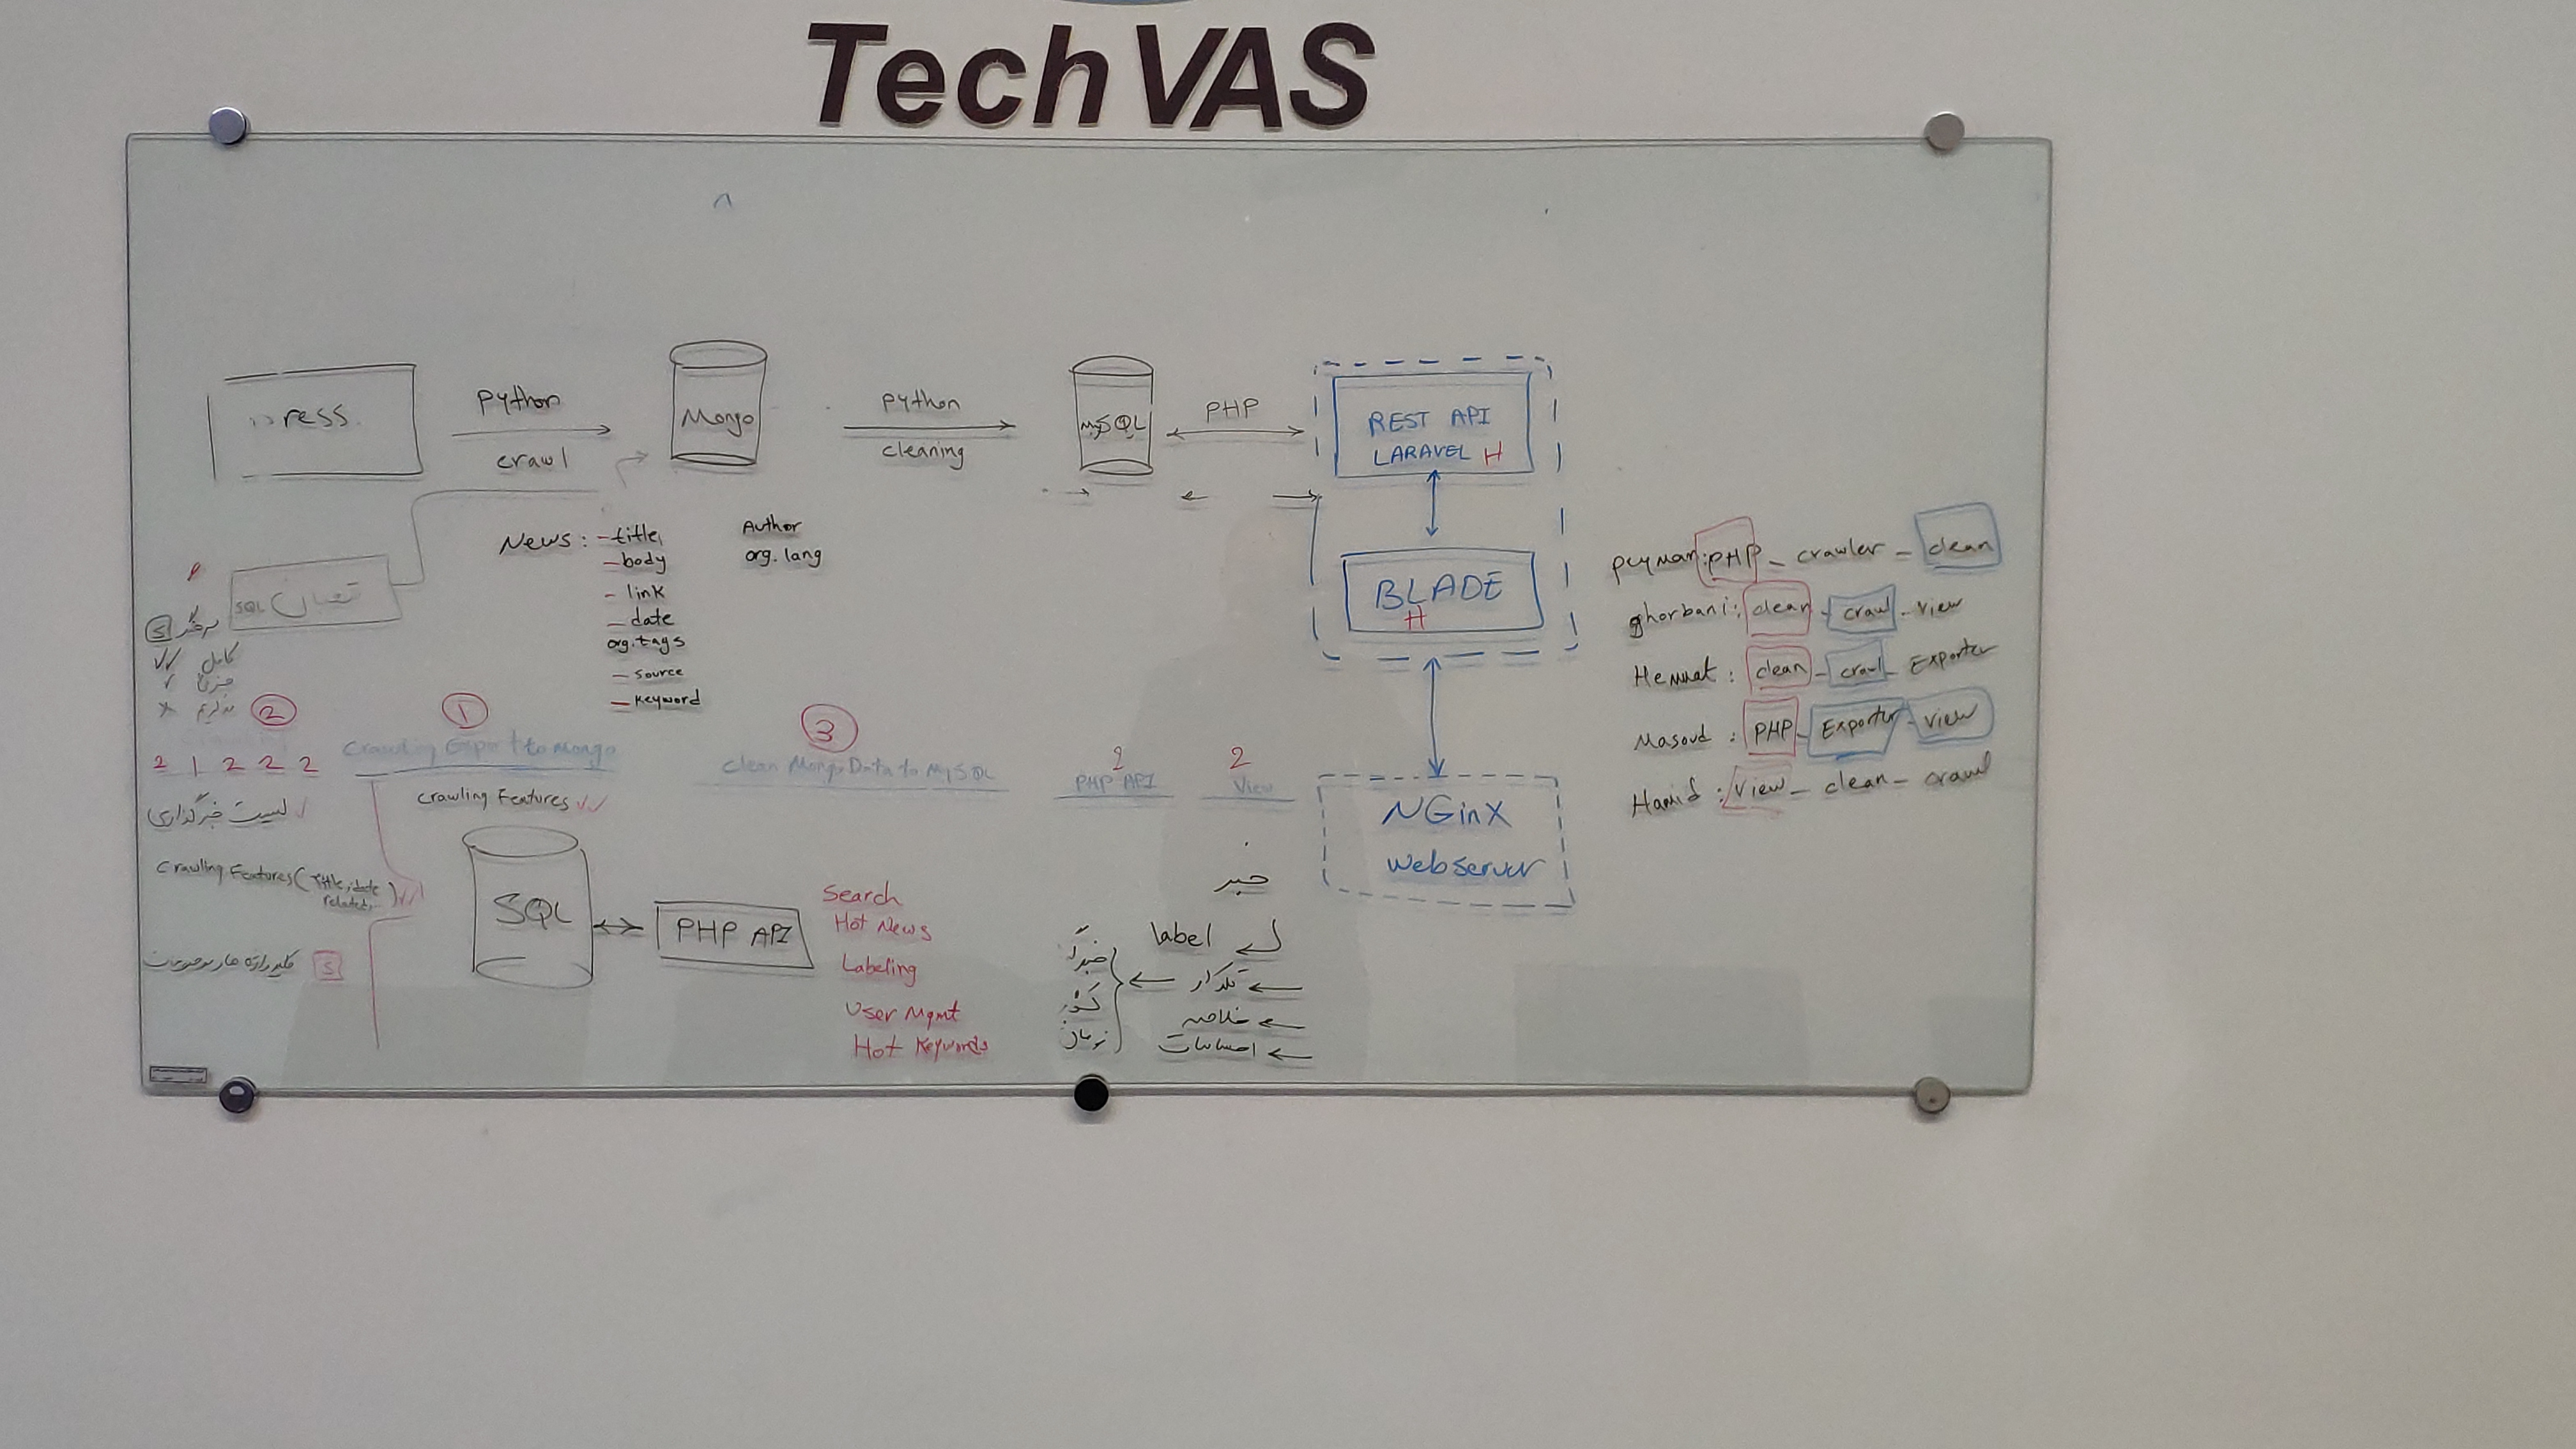 TechVAS
ress
Python
crawl
Mongo
Python
cleaning
MySQL
PHP
REST API
LARAVEL H
BLADE
H
NGinX
webserver
News : - title,
- body
- link
- date
org.tags
- source
- keyword
Author
org. lang
SQL
کامل
2
1
3
2 1 2 2 2
Crawling Export to Mongo
clean Mongo Data to MySQL
2
PHP API
2
View
لیست خبرگذاری
Crawling Features
Crawling Features (title, date
related,
S
SQL
PHP API
Search
Hot News
Labeling
User Mgmt
Hot Keywords
خبر
label
تکرار
خلاصه
احساسات
کشور
زمان
peyman : PHP - crawler - clean
ghorbani : clean - crawl - view
Hemmat : clean - crawl - Exporter
Masoud : PHP - Exporter - view
Hamid : view - clean - crawl